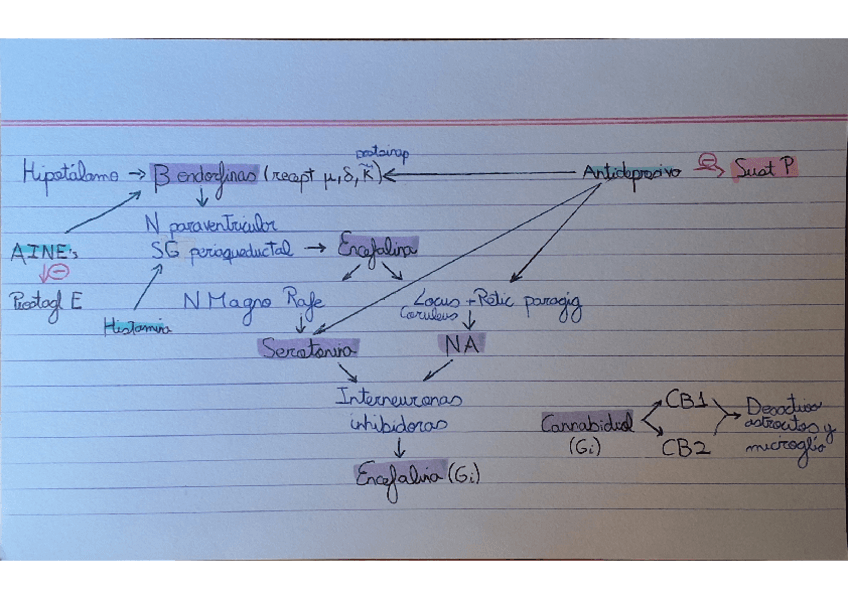 postsinap
Hipotálamo → β endorfinas (recept μ, δ, κ) ← Antidepresivo ⊖→ Sust P
N paraventricular
AINE's SG periaqueductal → Encefalina
⊖
Prostagl E N Magno Rafe Locus + Retic paragig
Histamina Coruleus
Serotonina NA
Interneuronas
inhibidoras
Encefalina (Gi)
Cannabidiol CB1 Desactiva
(Gi) CB2 astrocitos y
microglía